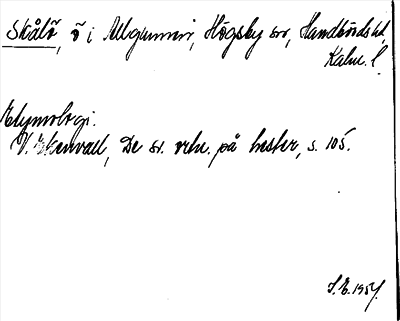 Skålö, ö i Allgunnen, Högsby sn, Handbörds hd,
Kalm. l.
Etymologi:
V. Ekenvall, De sv. ortn. på hester, s. 105.
S.E. 1957.